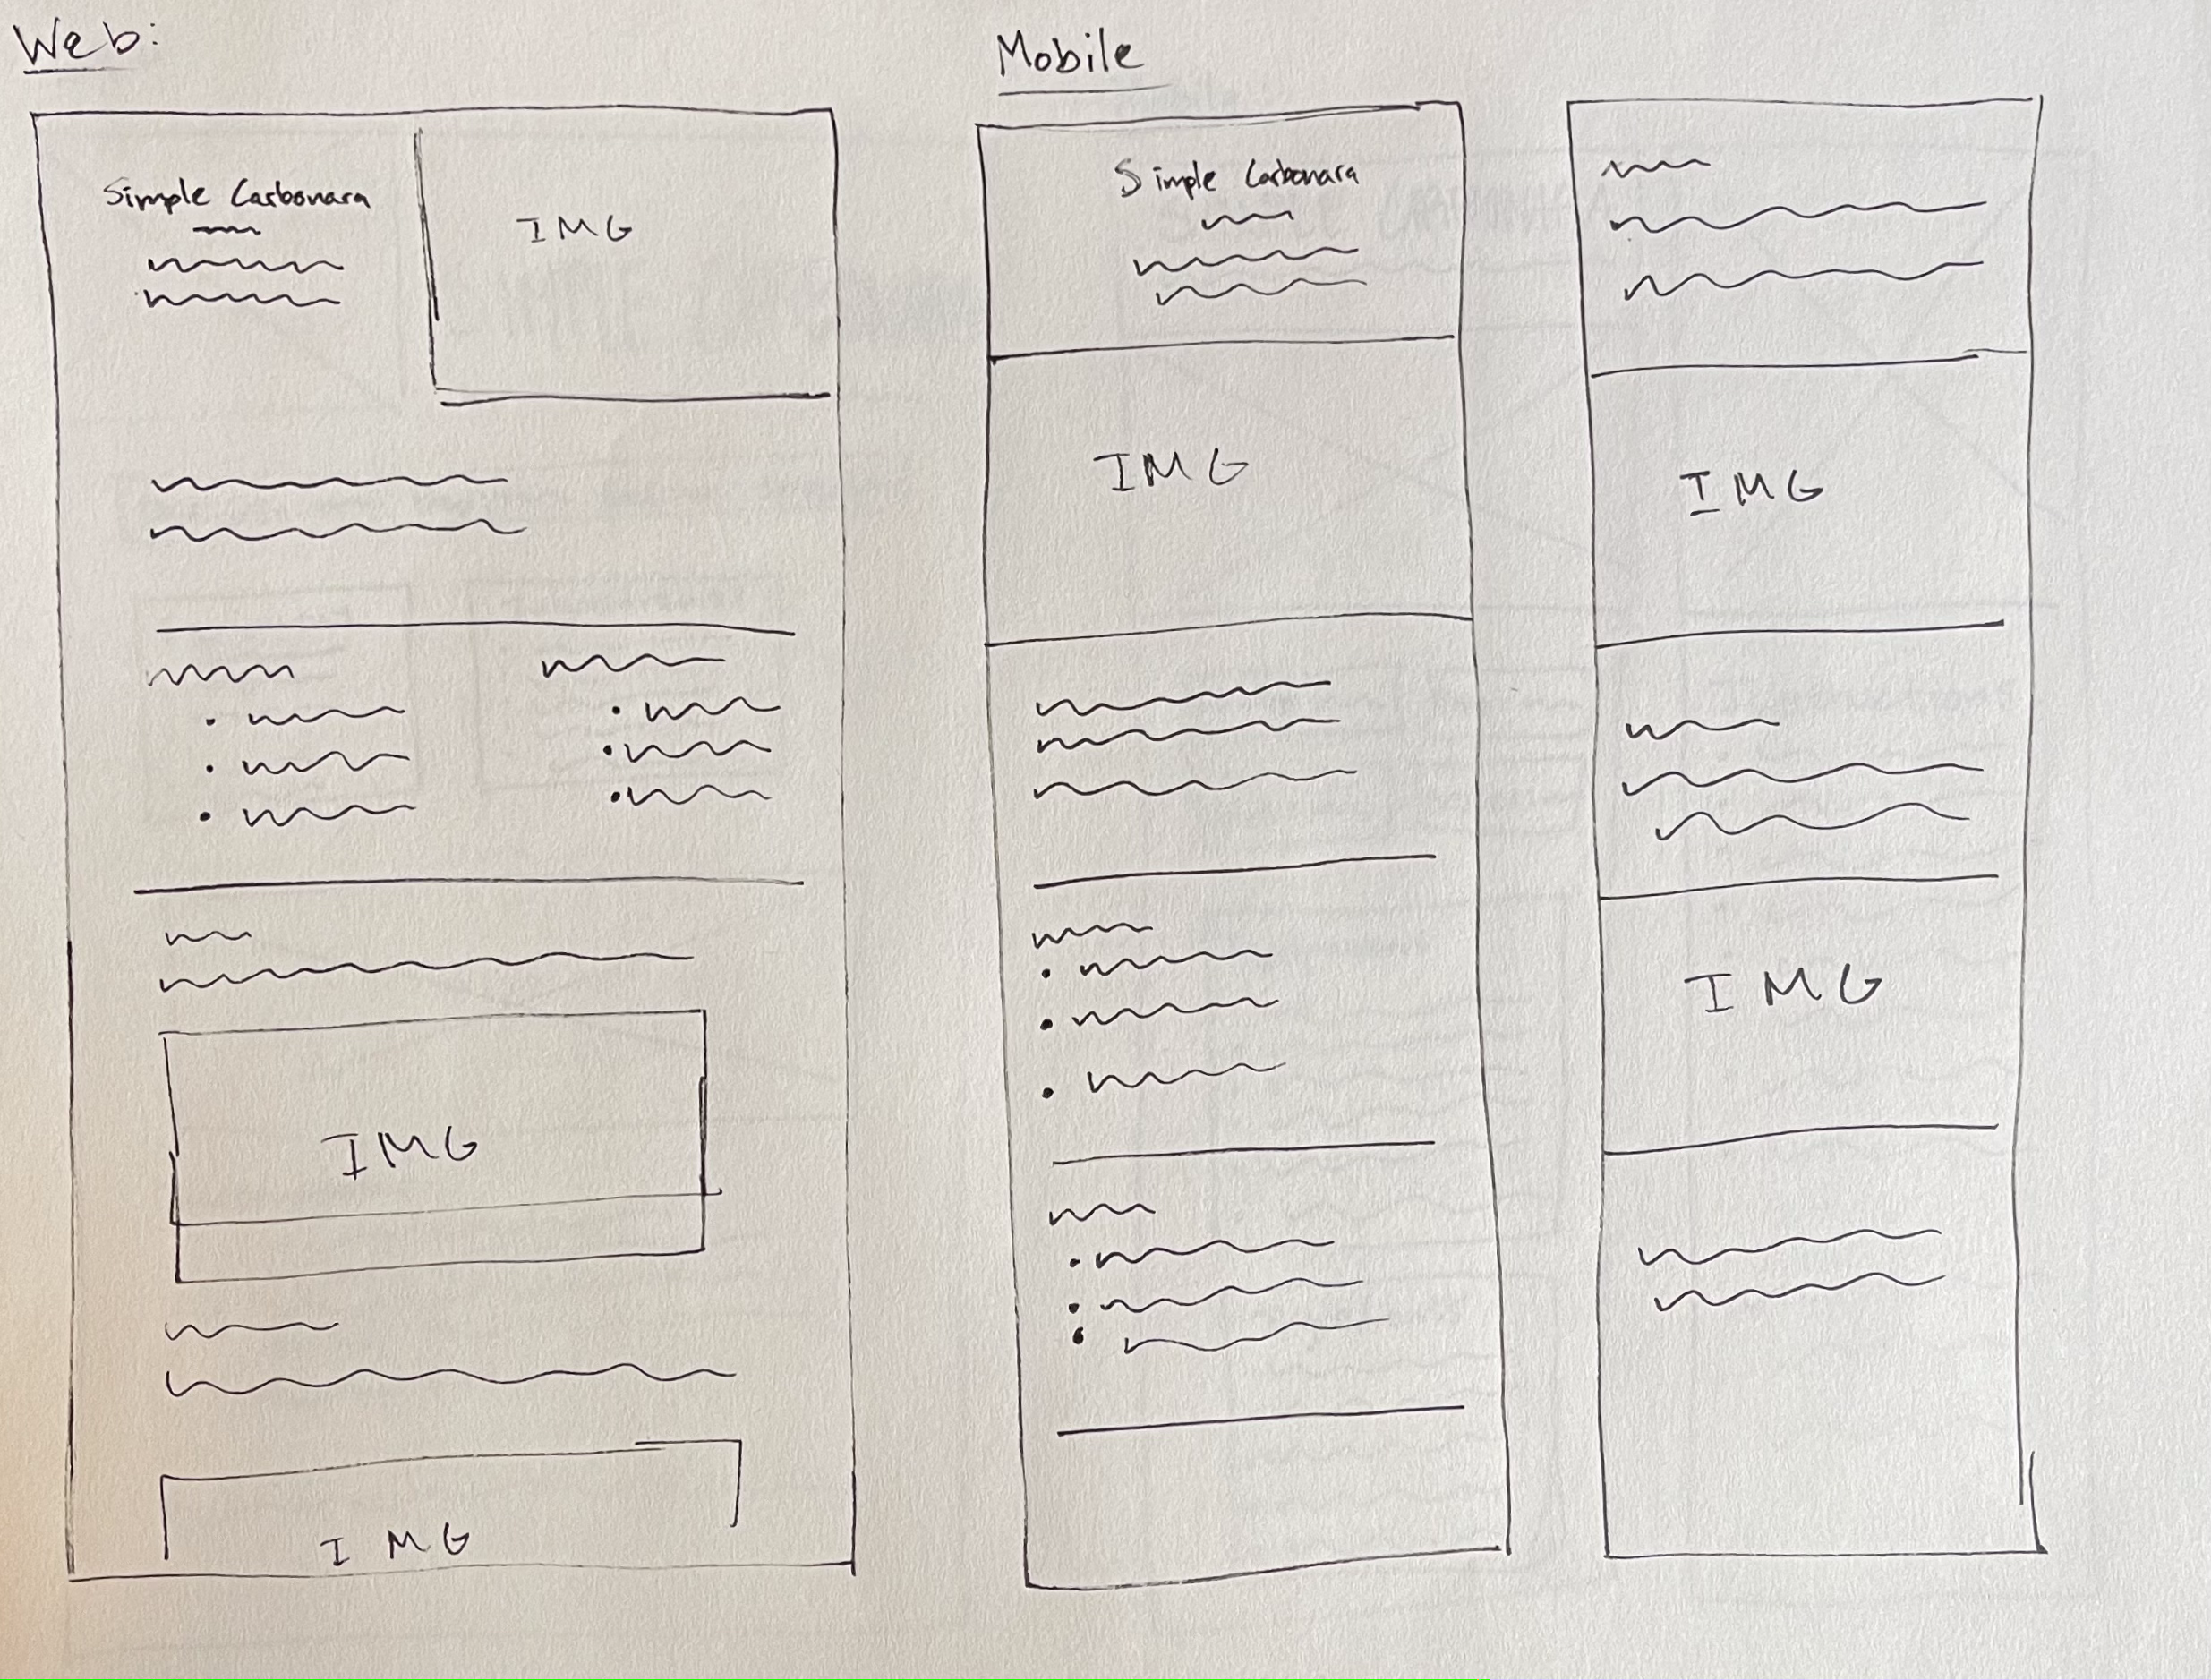 Web:
Simple Carbonara
IMG
IMG
IMG
Mobile
Simple Carbonara
IMG
IMG
IMG